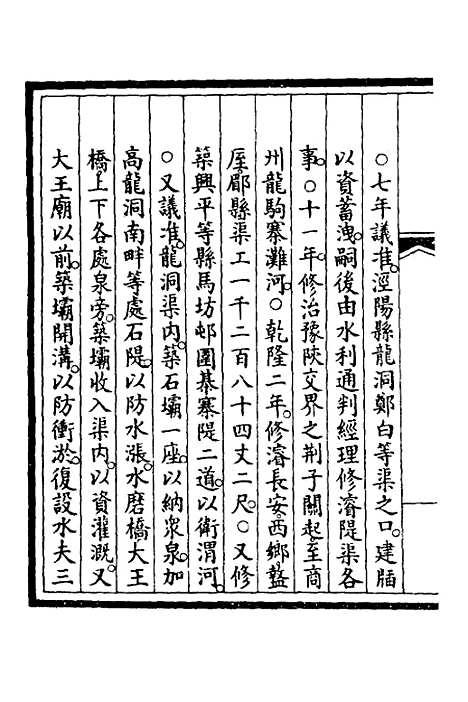 ○七年議准。涇陽縣龍洞鄭白等渠之口。建牐
以資蓄洩。嗣後由水利通判經理修濬隄渠各
事。○十一年。修治豫陝交界之荆子關起。至商
州龍駒寨灘河。○乾隆二年。修濬長安。西鄉。盩
厔。郿縣渠工一千二百八十四丈二尺。○又修
築興平等縣馬坊邨圍棊寨隄二道。以衛渭河。
○又議准。龍洞渠內。築石壩一座。以納衆泉。加
高龍洞南畔等處石隄。以防水漲。水磨橋大王
橋。上下各處泉旁。築壩收入渠內。以資灌溉。又
大王廟以前。築壩開溝。以防衝淤。復設水夫三